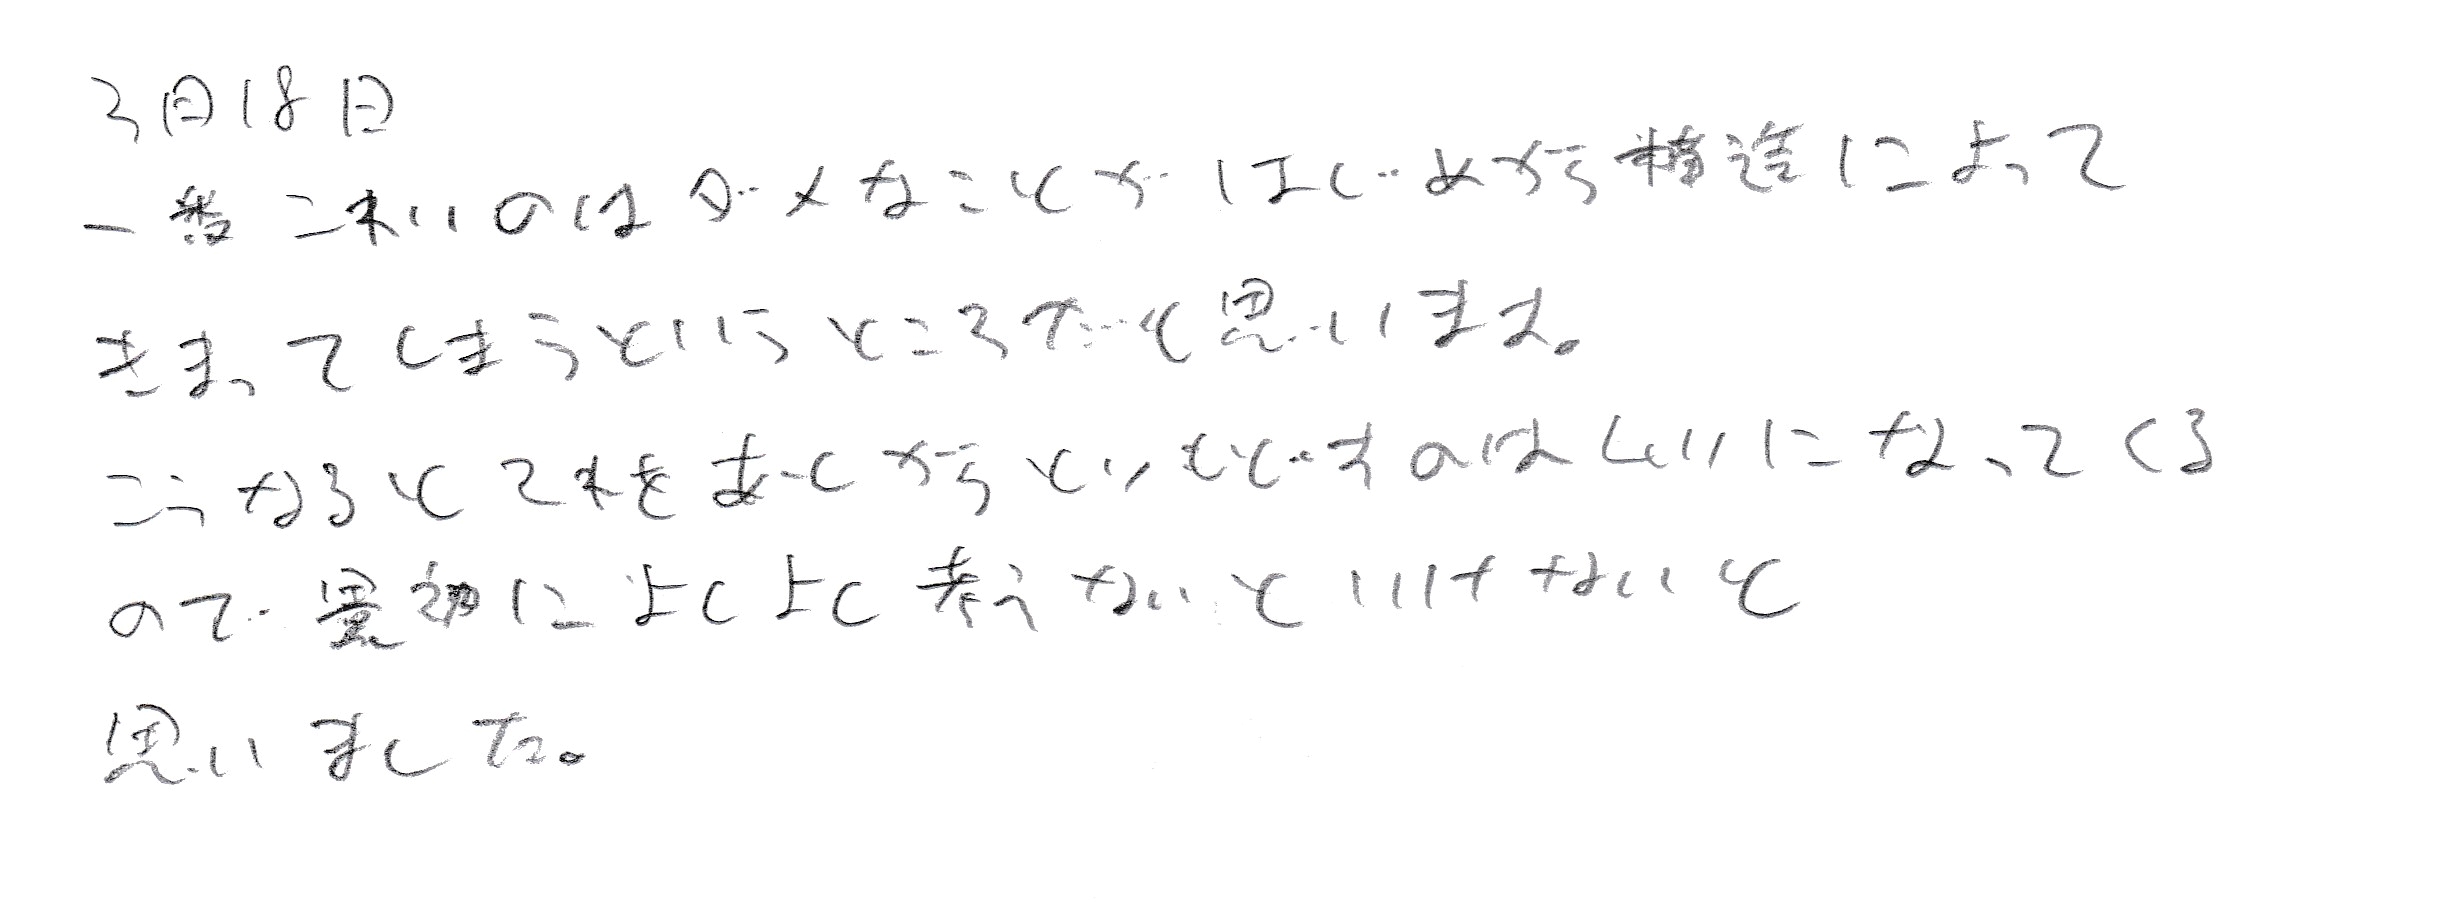 3月18日
一番こわいのはダメなことがはじめから構造によって
きまってしまうというところだと思います。
こうなるとこれをあとからとりもどすのはたいへんになってくる
ので最初によくよく考えないといけないと
思いました。